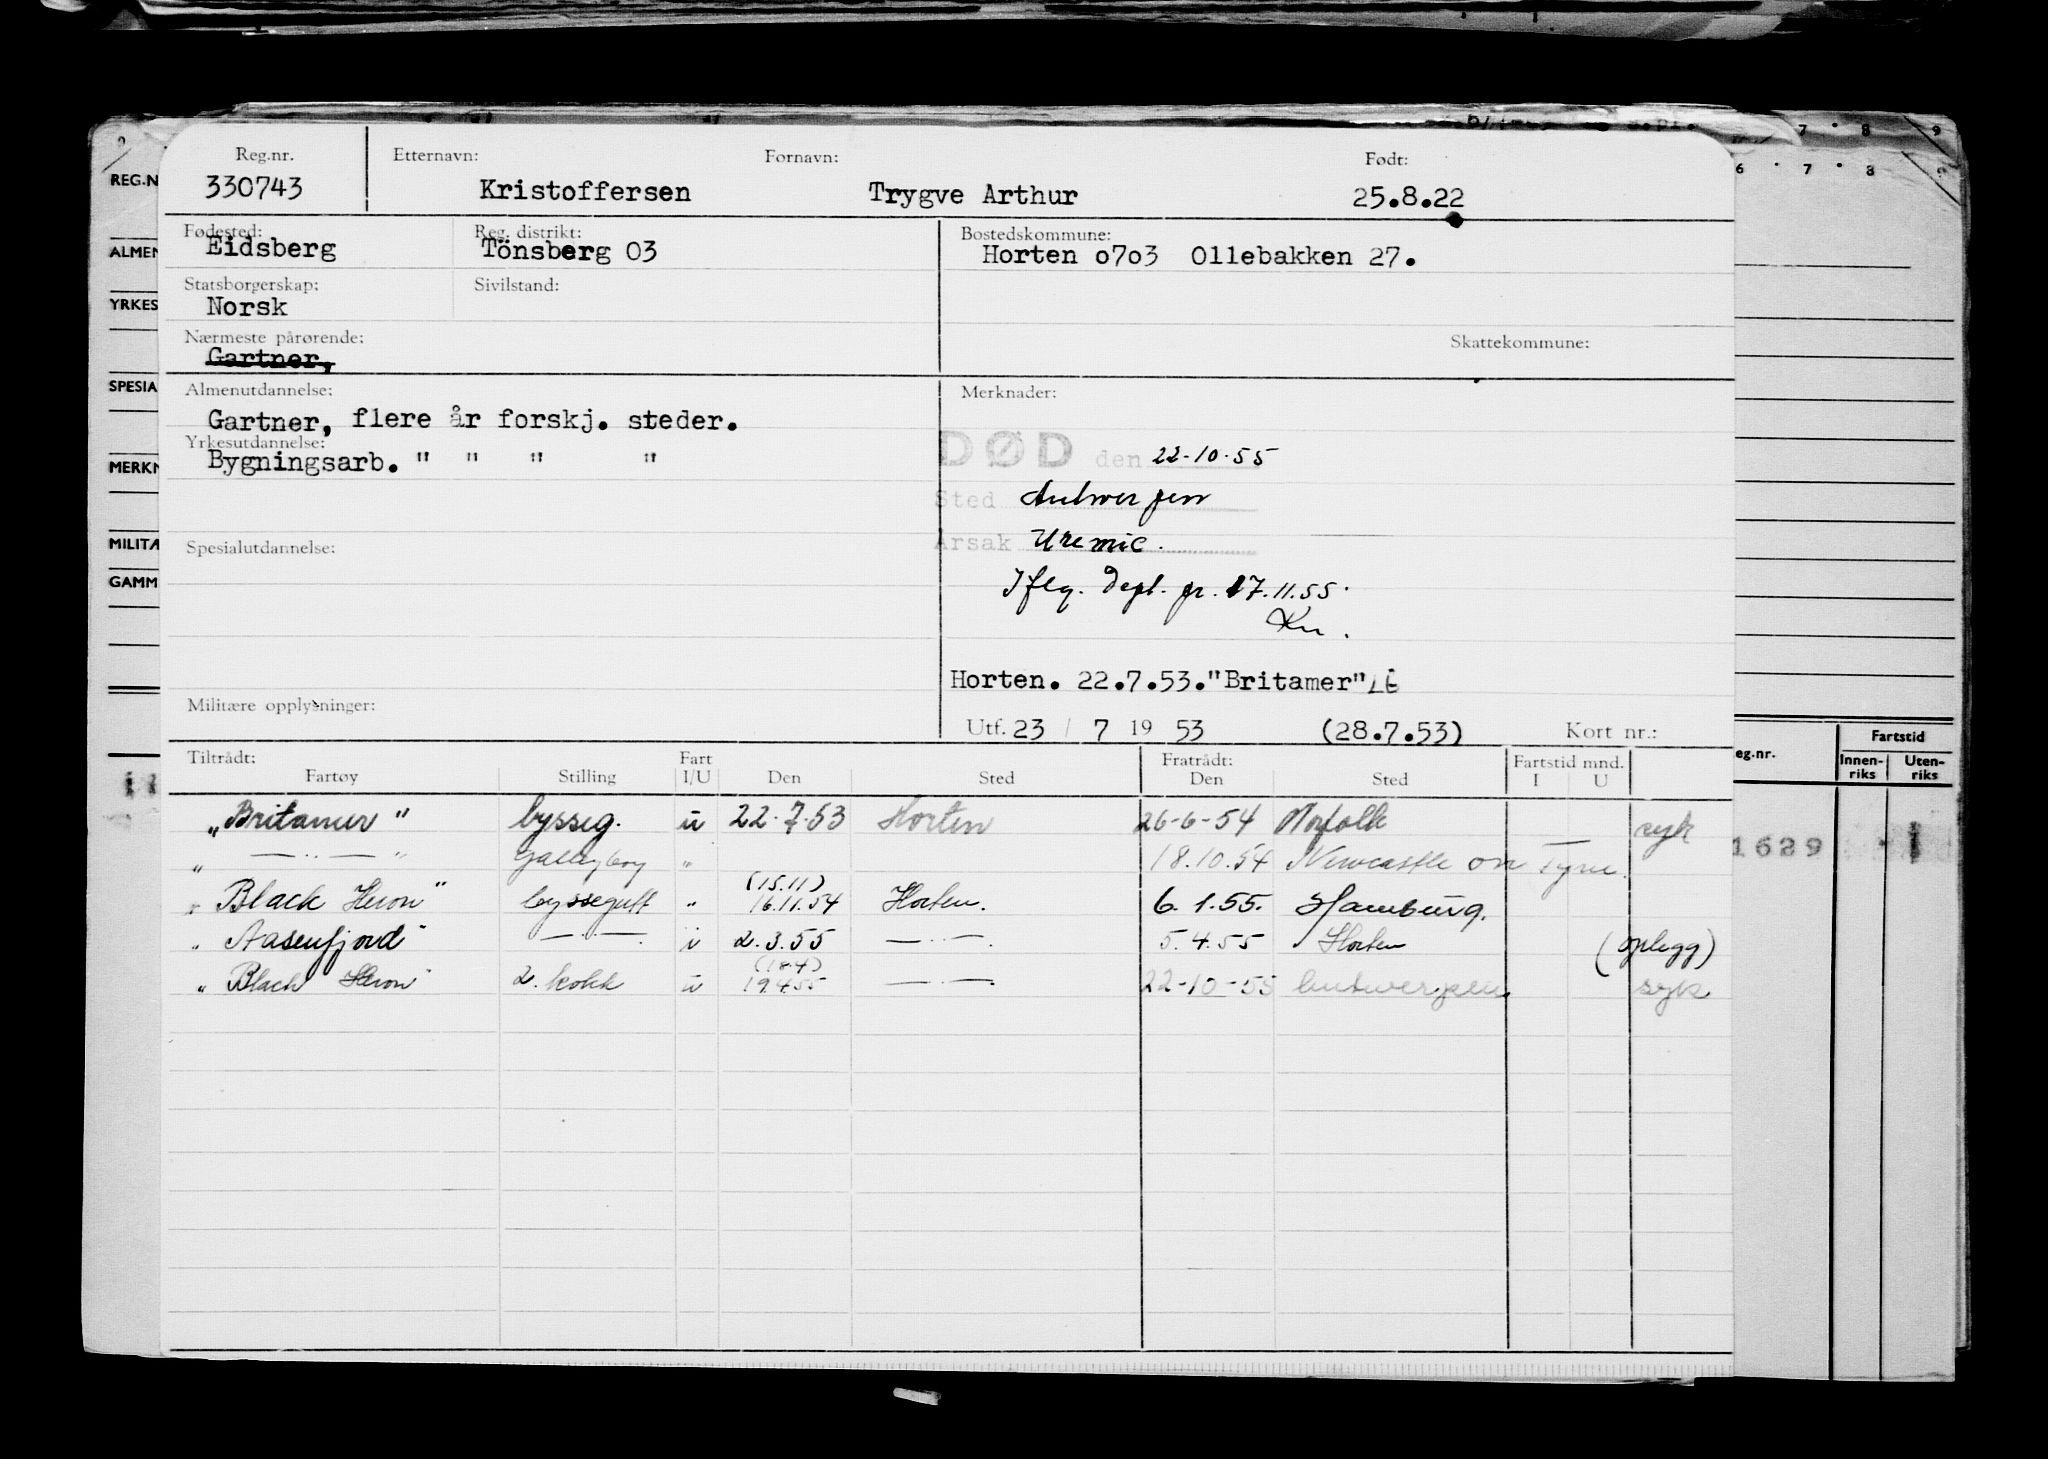 Reg.nr. Etternavn: Fornavn: Født:
330743 Kristoffersen Trygve Arthur 25.8.22
Fødested: Reg. distrikt: Bostedskommune:
Eidsberg Tönsberg 03 Horten o7o3 Ollebakken 27.
Statsborgerskap: Sivilstand:
Norsk
Nærmeste pårørende: Skattekommune:
Gartner,
Almenutdannelse: Merknader:
Gartner, flere år forskj. steder.
Yrkesutdannelse:
Bygningsarb. " " " "
DØD den 22-10-55
Sted Antwerpen
Årsak Uremie.
Iflg. Dept. pr. 17.11.55.
Kn.
Spesialutdannelse:
Horten. 22.7.53."Britamer"
Militære opplysninger:
Utf. 23 / 7 19 53 (28.7.53) Kort nr.:
Tiltrådt: Fart Fratrådt: Fartstid mnd.
Fartøy Stilling I/U Den Sted Den Sted I U
"Britamer" bysseg. u 22.7.53 Horten 26-6-54 Norfolk syk
" — " — " Galleyboy " 18.10.54 Newcastle on Tyne.
(15.11)
" Black Heron" byssegutt " 16.11.54 Horten. 6.1.55. Hamburg.
" Aasenfjord" — " — u 2.3.55 — " — 5.4.55 Horten (oplegg)
(18.4)
" Black Heron" 2. kokk u 19.4.55 — " — 22-10-55 Antwerpen syk
REG.N
ALMEN
YRKES
SPESIA
MERKN
MILITÆ
GAMM
7 8 9
6 7 8 9
eg.nr. Fartstid
Innen-riks Uten-riks
1629